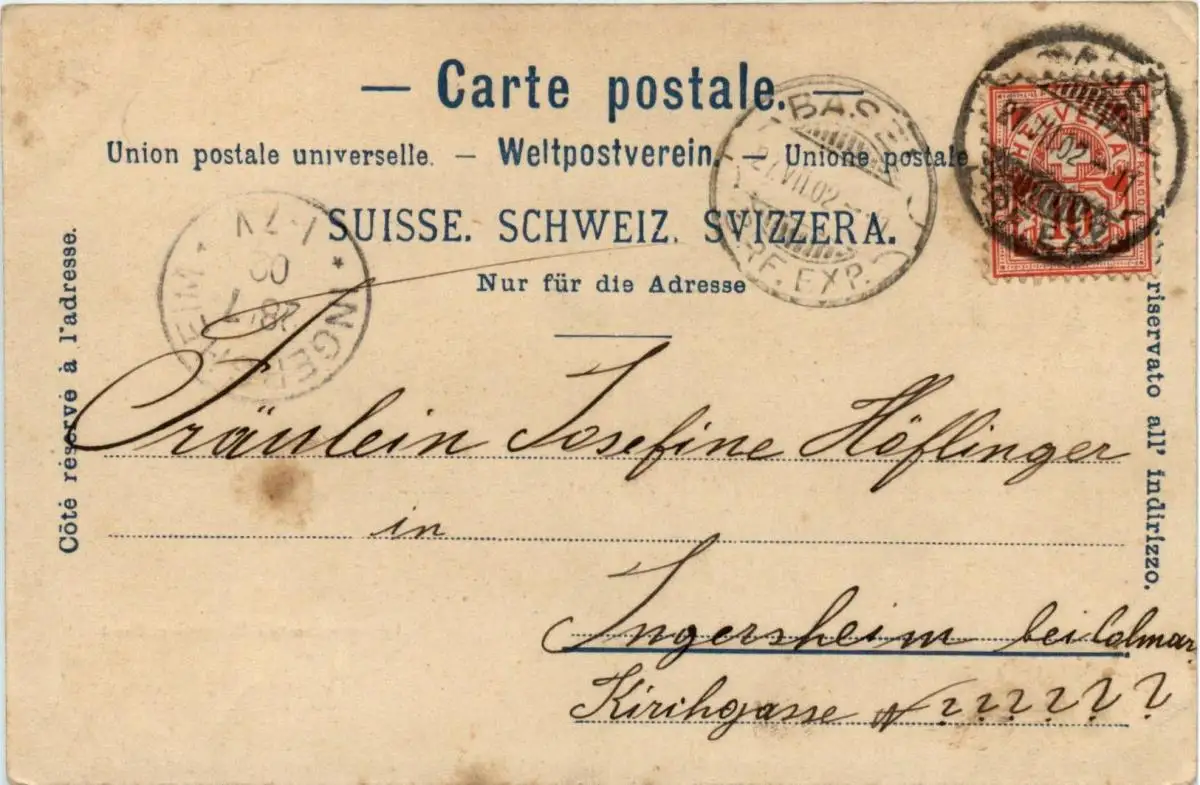 — Carte postale. —
Union postale universelle. — Weltpostverein. — Unione postale
SUISSE. SCHWEIZ. SVIZZERA.
Nur für die Adresse
Côté réservé à l'adresse.
riservato all' indirizzo.
HELVETIA
FRANCO
10
BASEL
27.VII.02
BRF. EXP.
27.VII.02 - 11
EXP.
INGERSHEIM
28/7
02
Fräulein Josefine Höflinger
in
Ingersheim bei Colmar
Kirchgasse N ? ? ? ? ? ?